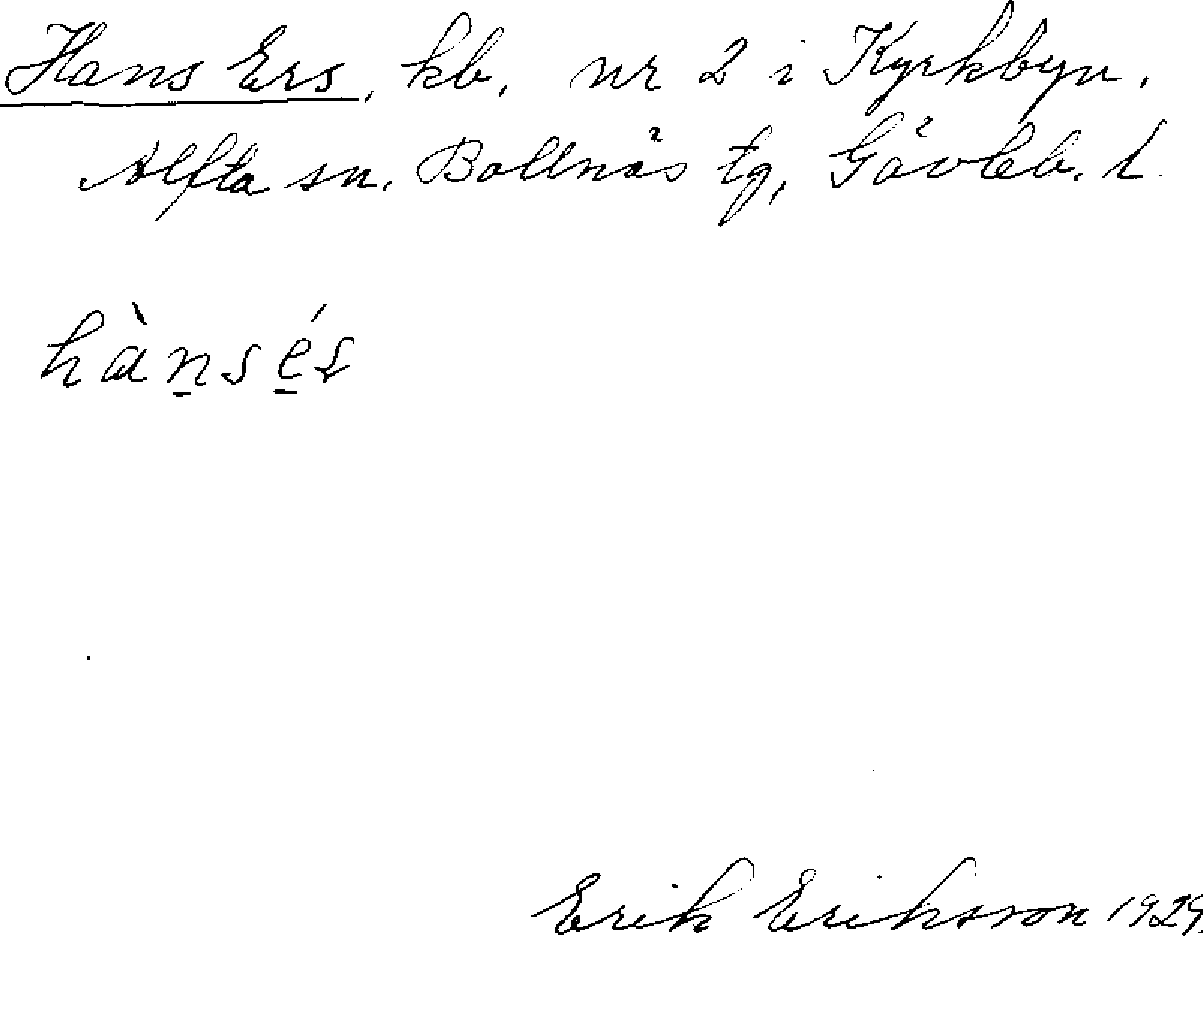 Hans Ers, kb. nr 2 i Kyrkbyn.
Alfta sn. Bollnäs tg, Gävleb. l.
hànsés
Erik Eriksson 1929.